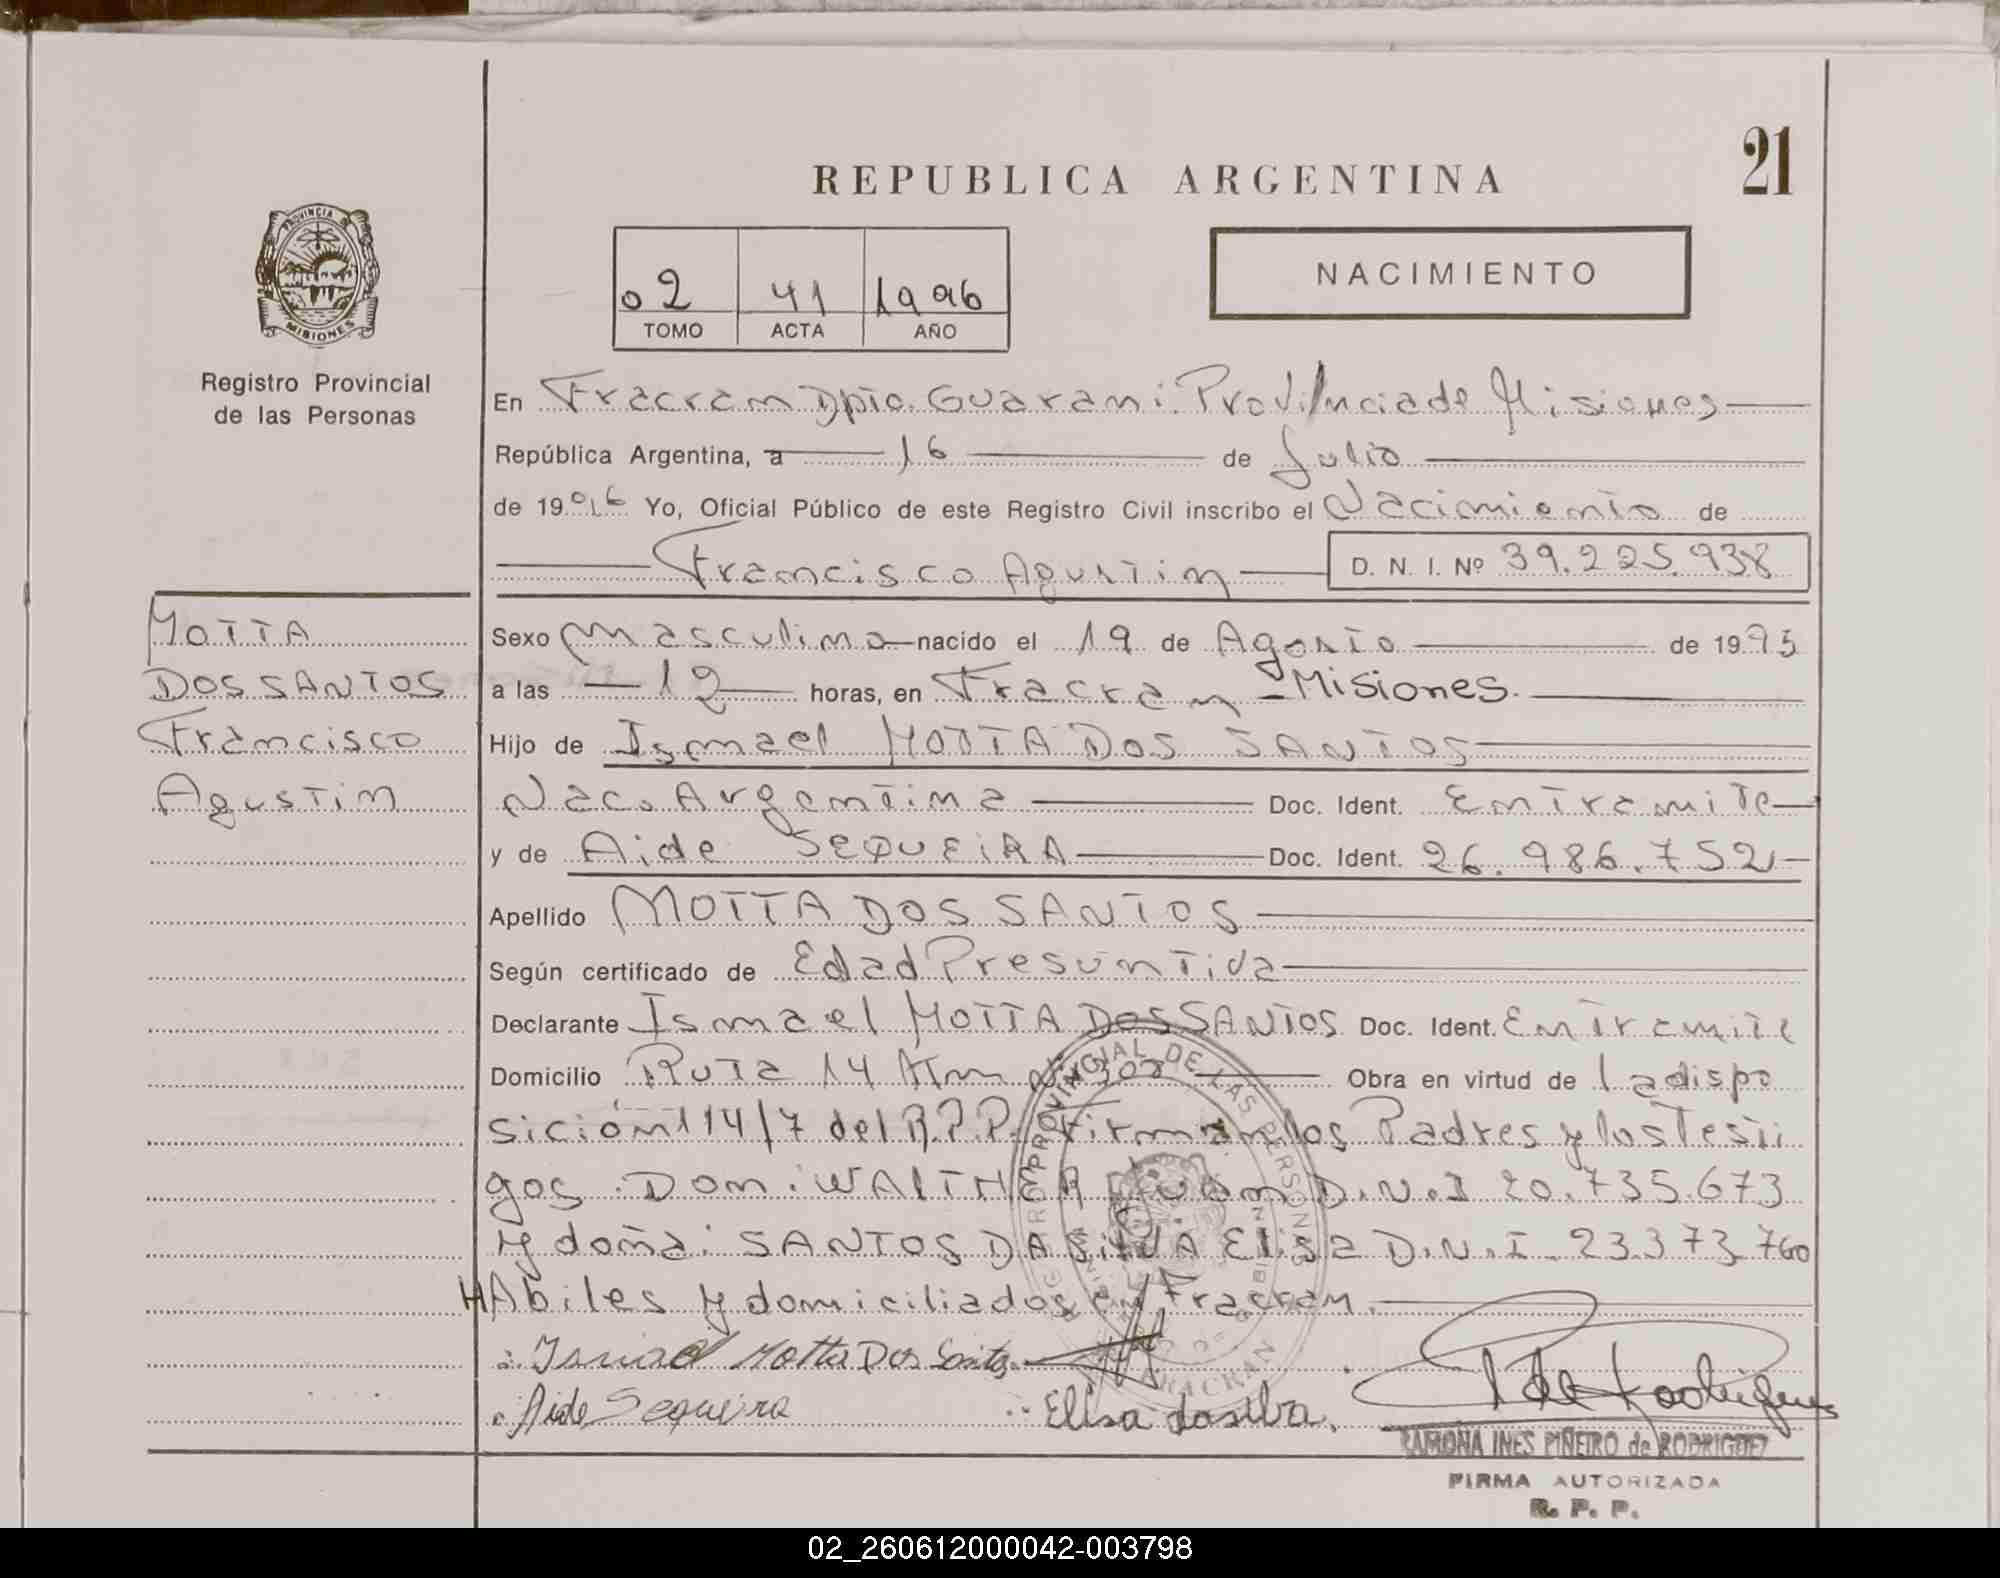 21
REPUBLICA ARGENTINA
PROVINCIA DE
MISIONES
Registro Provincial
de las Personas
02 41 1996
TOMO ACTA AÑO
NACIMIENTO
En Fracram Dpto. Guarani Provincia de Misiones
República Argentina, a 16 de Julio
de 1996 Yo, Oficial Público de este Registro Civil inscribo el Nacimiento de
Francisco Agustin D. N. I. Nº 39.225.938
MOTTA
DOS SANTOS
Francisco
Agustin
Sexo masculino nacido el 19 de Agosto de 1995
a las 12 horas, en Fracram - Misiones.
Hijo de Ismael MOTTA DOS SANTOS
Nac. Argentina Doc. Ident. En Tramite
y de Aide SEQUEIRA Doc. Ident. 26.986.752
Apellido MOTTA DOS SANTOS
Según certificado de Edad Presuntiva
Declarante Ismael MOTTA DOS SANTOS Doc. Ident. En Tramite
Domicilio Ruta 14 Km Obra en virtud de la dispo
sición 114/7 del R.P.P. Firman los Padres y los Testi
gos Don: WALTHER D.N.I 20.735.673
y doña: SANTOS DA SILVA Elisa D.N.I. 23.373.760
HAbiles y domiciliados en Fracran.
Ismael Motta Dos Santos
Aide Sequeira Elisa dasilva. Rodriguez
RAMONA INES PIÑEIRO de RODRIGUEZ
FIRMA AUTORIZADA
R. P. P.
PROVINCIAL DE LAS PERSONAS
FRACRAN
02_260612000042-003798